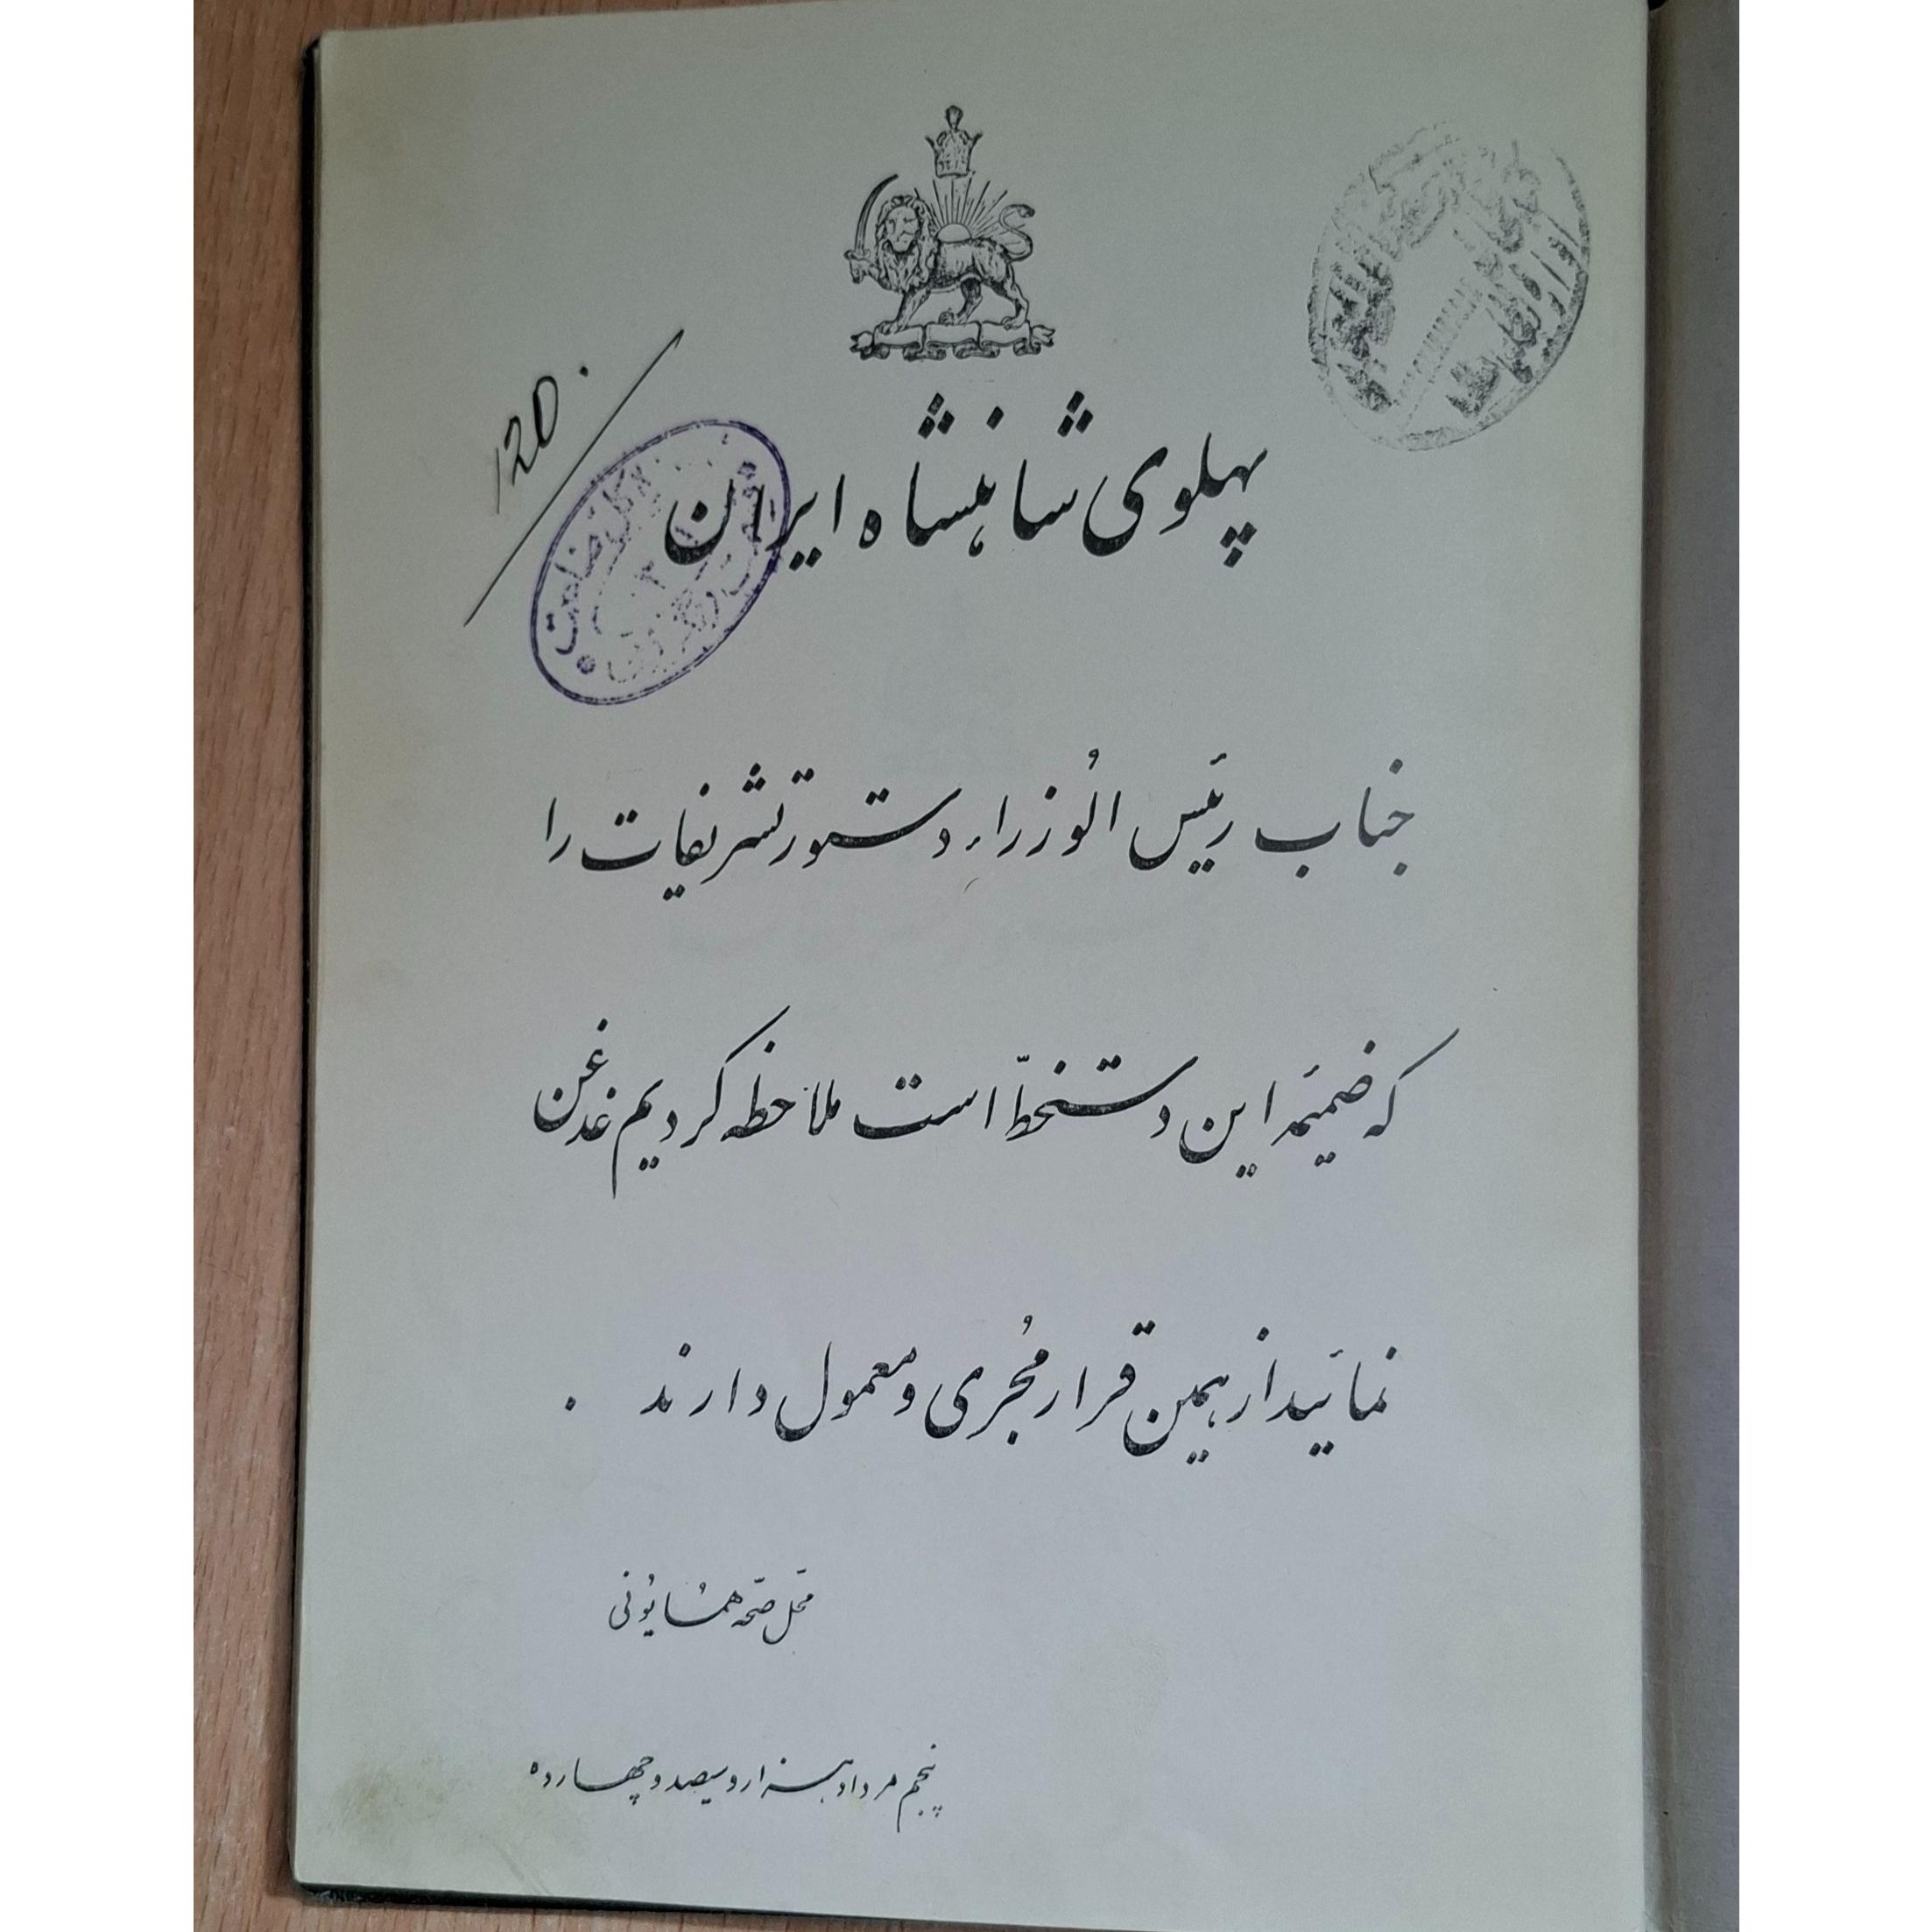 120.
پهلوی شاهنشاه ایران
جناب رئیس الوُزراء دستور تشریفات را
که ضمیمهٔ این دستخطّ است ملاحظه کردیم غدغن
نمائید از همین قرار مُجری و معمول دارند .
محلّ صحّهٔ همایُونی
پنجم مرداد هزار و سیصد و چهارده